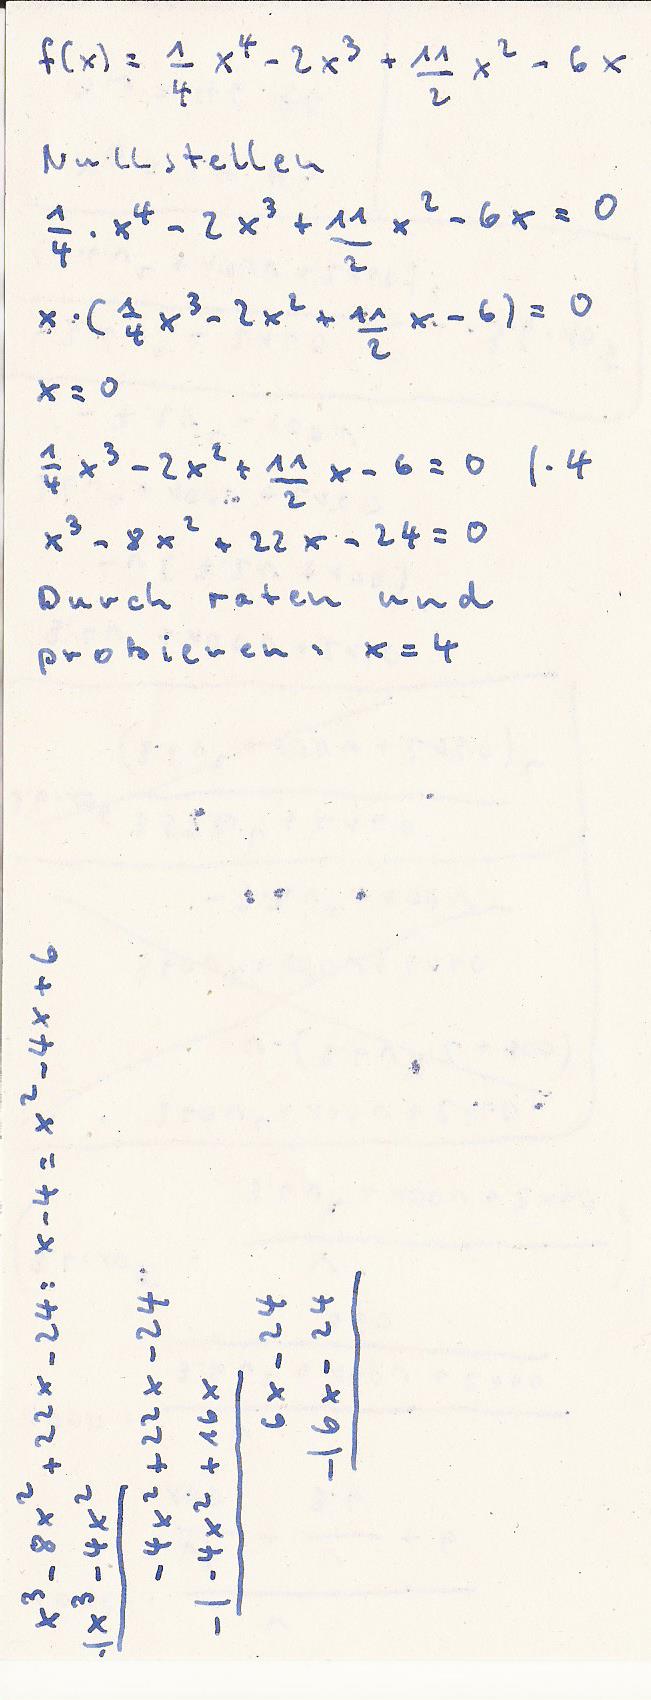 f(x) = 1/4 x^4 - 2x^3 + 11/2 x^2 - 6x
Nullstellen
1/4 · x^4 - 2x^3 + 11/2 x^2 - 6x = 0
x · (1/4 x^3 - 2x^2 + 11/2 x - 6) = 0
x = 0
1/4 x^3 - 2x^2 + 11/2 x - 6 = 0 | · 4
x^3 - 8x^2 + 22x - 24 = 0
Durch raten und
probieren. x = 4
x^3 - 8x^2 + 22x - 24 : x - 4 = x^2 - 4x + 6
-| x^3 - 4x^2
- 4x^2 + 22x - 24
-| -4x^2 + 16x
6x - 24
-| 6x - 24